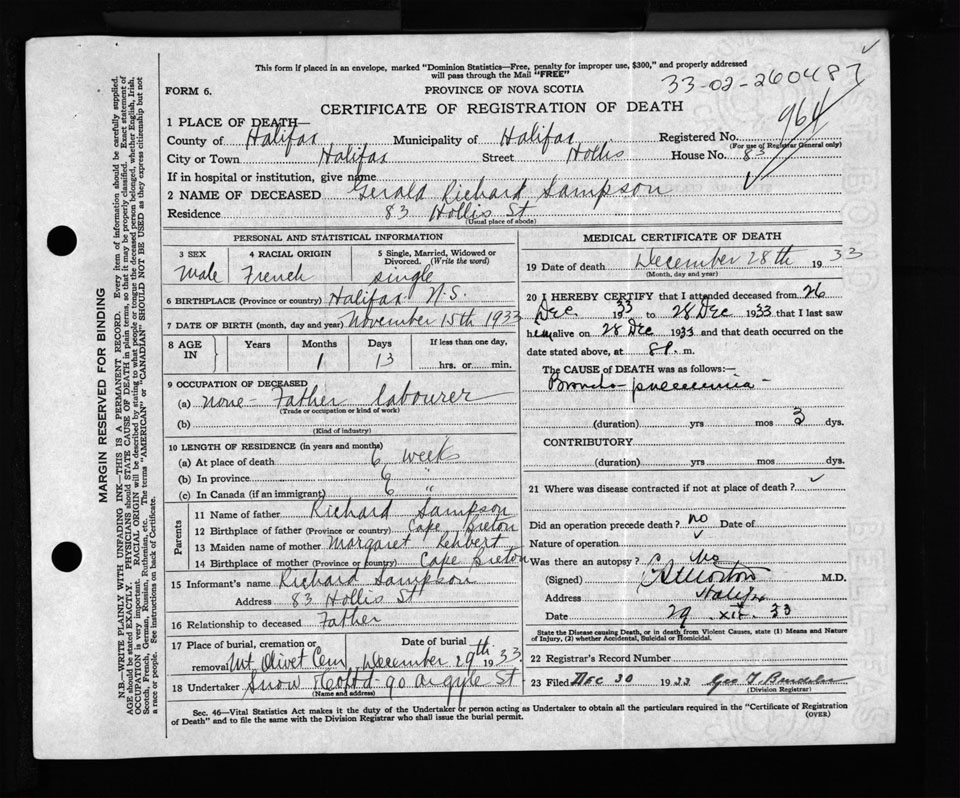 This form if placed in an envelope, marked "Dominion Statistics—Free, penalty for improper use, $300," and properly addressed
will pass through the Mail "FREE"
33-02-260487
FORM 6.
PROVINCE OF NOVA SCOTIA
CERTIFICATE OF REGISTRATION OF DEATH
964
1 PLACE OF DEATH—
County of Halifax Municipality of Halifax Registered No.
(For use of Registrar General only)
City or Town Halifax Street Hollis House No. 83
If in hospital or institution, give name
2 NAME OF DECEASED Gerald Richard Sampson
Residence 83 Hollis St
(Usual place of abode)
PERSONAL AND STATISTICAL INFORMATION
3 SEX 4 RACIAL ORIGIN 5 Single, Married, Widowed or
Divorced. (Write the word)
Male French single
6 BIRTHPLACE (Province or country) Halifax N.S.
7 DATE OF BIRTH (month, day and year) November 15th 1933
8 AGE IN Years Months Days If less than one day,
1 13 hrs. or min.
9 OCCUPATION OF DECEASED
(a) none - Father labourer
(Trade or occupation or kind of work)
(b)
(Kind of industry)
10 LENGTH OF RESIDENCE (in years and months)
(a) At place of death 6 weeks
(b) In province 6 "
(c) In Canada (if an immigrant) 6 "
Parents
11 Name of father Richard Sampson
12 Birthplace of father (Province or country) Cape Breton
13 Maiden name of mother Margaret
14 Birthplace of mother (Province or country) Cape Breton
15 Informant's name Richard Sampson
Address 83 Hollis St
16 Relationship to deceased Father
17 Place of burial, cremation or removal Mt. Olivet Cem. Date of burial December 29th 1933
18 Undertaker Snow & Co Ltd - 90 Argyle St
(Name and address)
MEDICAL CERTIFICATE OF DEATH
19 Date of death December 28th 1933
(Month, day and year)
20 I HEREBY CERTIFY that I attended deceased from 26
Dec 1933 to 28 Dec 1933 that I last saw
him alive on 28 Dec 1933 and that death occurred on
date stated above, at 8 P. m.
The CAUSE OF DEATH was as follows:—
Broncho-pneumonia -
(duration) yrs mos 3 dys.
CONTRIBUTORY
(duration) yrs mos dys.
21 Where was disease contracted if not at place of death?
Did an operation precede death? no Date of
Nature of operation
Was there an autopsy? No
(Signed) M.D.
Address Halifax
Date 29 . xii . 33
State the Disease causing Death, or in death from Violent Causes, state (1) Means and Nature
of Injury, (2) whether Accidental, Suicidal or Homicidal.
22 Registrar's Record Number
23 Filed DEC 30 1933 Geo
(Division Registrar)
Sec. 46—Vital Statistics Act makes it the duty of the Undertaker or person acting as Undertaker to obtain all the particulars required in the "Certificate of Registration
of Death" and to file the same with the Division Registrar who shall issue the burial permit.
(OVER)
MARGIN RESERVED FOR BINDING
N.B.—WRITE PLAINLY WITH UNFADING INK—THIS IS A PERMANENT RECORD. Every item of information should be carefully supplied.
AGE should be stated EXACTLY. PHYSICIANS should STATE CAUSE OF DEATH in plain terms, so that it may be properly classified. Exact statement of
OCCUPATION is very important. RACIAL ORIGIN will be described by stating to what people or tongue the deceased person belonged, whether English, Irish,
Scotch, French, German, Russian, Ruthenian, etc. The terms "AMERICAN" or "CANADIAN" SHOULD NOT BE USED as they express citizenship but not
a race or people. See instructions on back of Certificate.